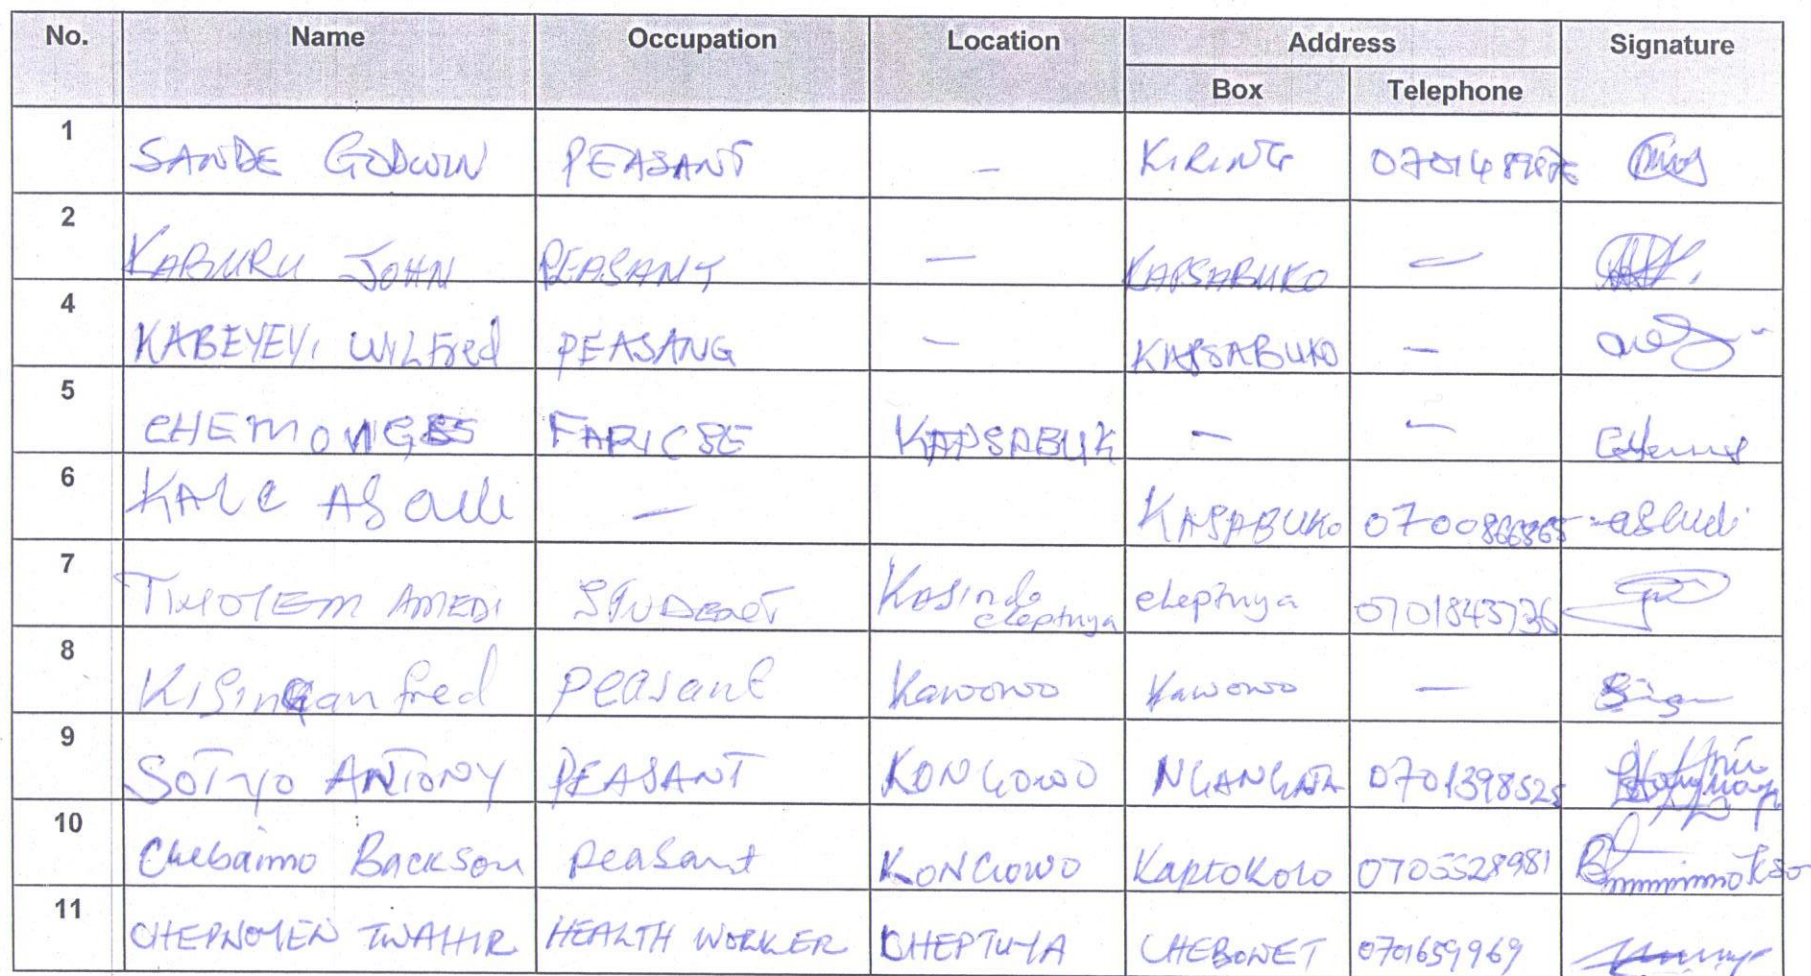 No. Name Occupation Location Address Signature
Box Telephone
1 SANDE GODWIN PEASANT – KIRING
2 KABURU JOHN PEASANT – KAPSABUKO –
4 KABEYEYI WILFred PEASANG – KAPSABUKO –
5 CHEMONGES FARICSE KAPSABUK – –
6 KALE – KASABUKO 0700866865
7 AMEDI STUDENT Kasindo cheptuya 0701843736
cheptuya
8 fred peasant Kawowo Kawowo –
9 SOTYO ANTONY PEASANT KONGOWO NGANGATA 0701398525
10 Chebaimo BACKSON peasant KONGOWO Kaptokolo 0705528981
11 TWAHIR HEALTH WORKER CHEPTUYA CHEBONET 0701659969